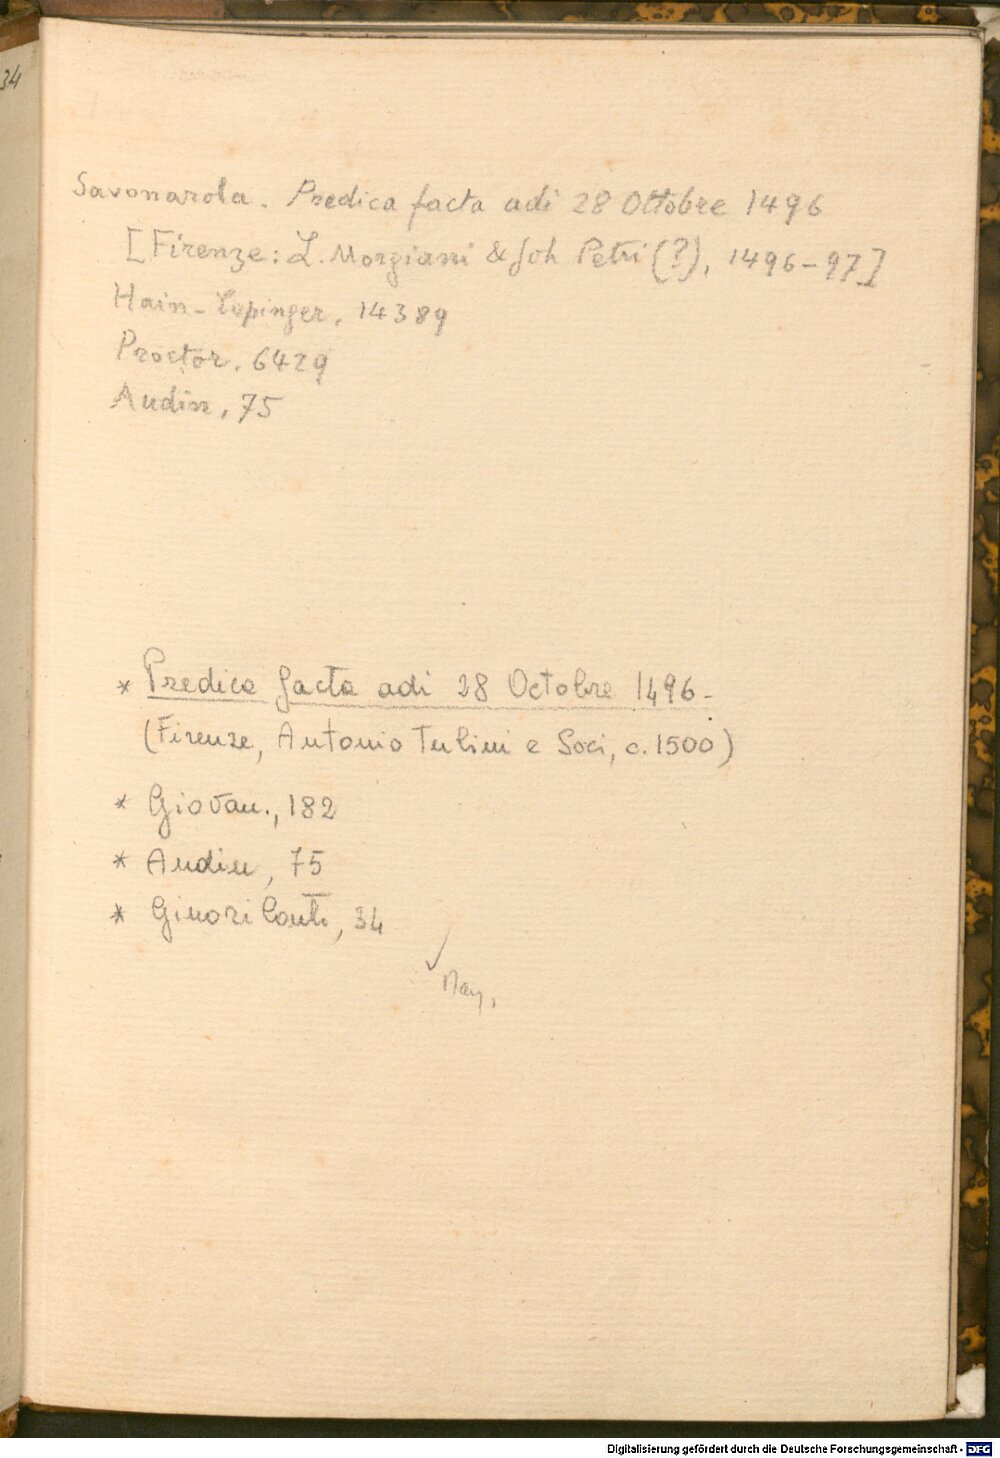 34
Savonarola. Predica facta adi 28 Ottobre 1496
[Firenze: L. Morgiani & Joh Petri (?), 1496-97]
Hain-Copinger, 14389
Proctor, 6429
Audin, 75
* Predica facta adi 28 Octobre 1496-
(Firenze, Antonio Tubini e Soci, c. 1500)
* Giovan., 182
* Audin, 75
* Ginori Conti, 34
Digitalisierung gefördert durch die Deutsche Forschungsgemeinschaft - DFG